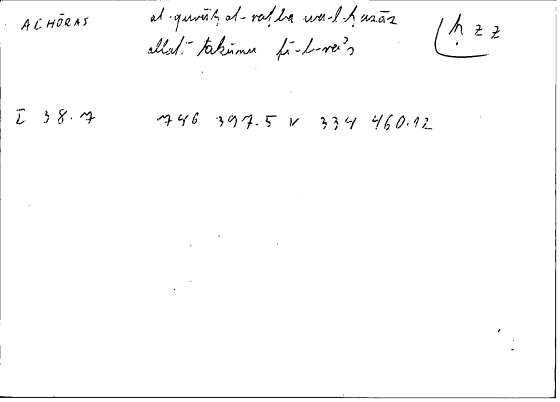 ACHŌRAS al-qurūḥ al-raṭba wa-l-ḥazāz
allatī takūnu fī-l-ra's
ḥ z z
I 38.7 746 397.5 v 334 460.12